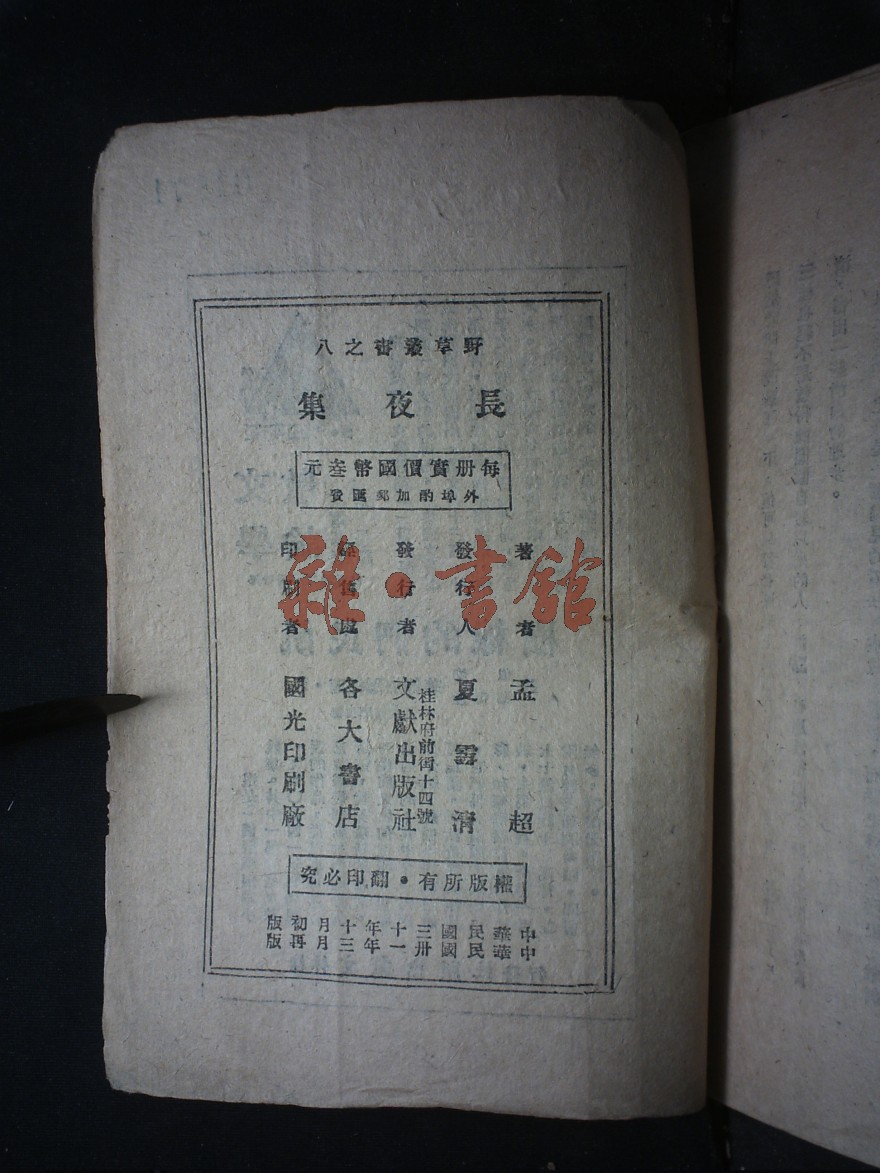 野草叢書之八
長夜集
每册實價國幣叁元
外埠酌加郵匯費
著者 孟超
發行人 夏清
發行者 桂林府前街十四號 文獻出版社
經售處 各大書店
印刷者 國光印刷廠
權版所有・翻印必究
中華民國三十年十月初版
中華民國卅一年三月再版
雜·書館